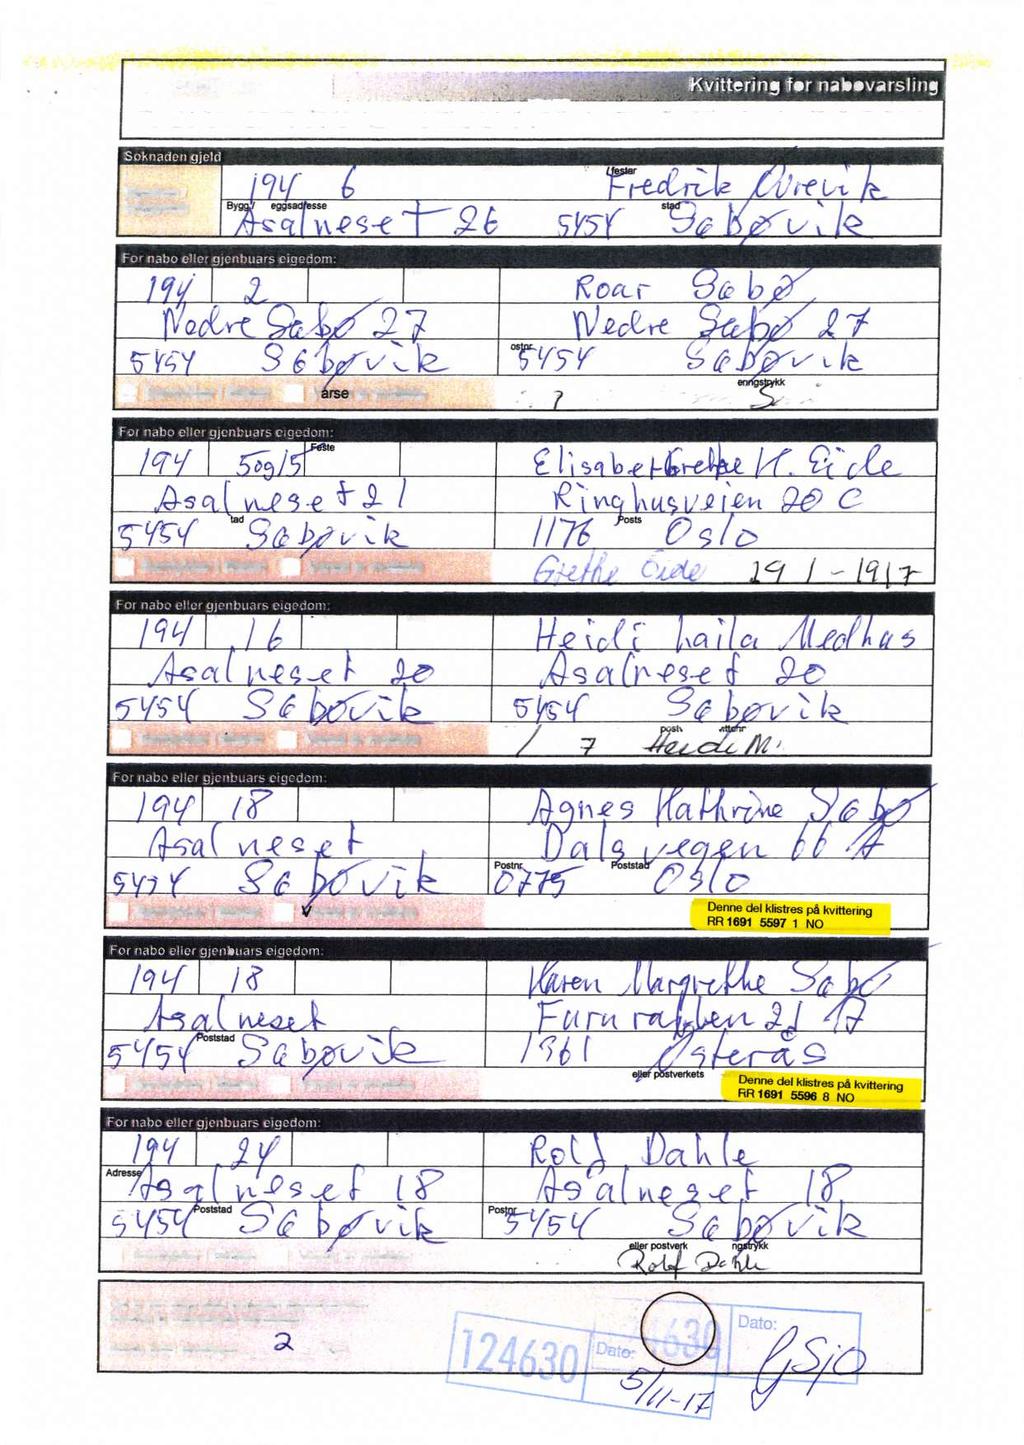 Kvittering for nabovarsling
Søknaden gjeld
194 6 /fester Fredrik
Bygg / eggsadresse stad
Asalneset 26 5454 Sæbøvik
For nabo eller gjenbuars eigedom:
194 2 Roar Sæbø
Nedre Sæbø 27 Nedre Sæbø 27
5454 Sæbøvik ostnr 5454 Sæbøvik
arse enngstrykk
For nabo eller gjenbuars eigedom:
194 5og15 Feste Elisabet Grethe H. Eide
Asalneset 21 Ringhusveien 20 C
5454 tad Sæbøvik 1176 Posts Oslo
Grethe Eide
For nabo eller gjenbuars eigedom:
194 16 Heidi Laila Medhus
Asalneset 20 Asalneset 20
5454 Sæbøvik 5454 Sæbøvik
7 Heidi M.
For nabo eller gjenbuars eigedom:
194 18 Agnes Kathrine Sæbø
Asalneset Dalsvegen 66 A
5454 Sæbøvik Postnr 0775 Poststad Oslo
Denne del klistres på kvittering
RR 1691 5597 1 NO
For nabo eller gjenbuars eigedom:
194 18 Karen Margrethe Sæbø
Asalneset Furu 17
5454 Poststad Sæbøvik 1361 Østerås
eller postverkets
Denne del klistres på kvittering
RR 1691 5596 8 NO
For nabo eller gjenbuars eigedom:
194 24 Rolf Dahle
Adresse Asalneset 18 Asalneset 18
5454 Poststad Sæbøvik Postnr 5454 Sæbøvik
eller postverk ngstrykk
Rolf Dahle
2 124630 Dato: 630 Dato:
5/11-17